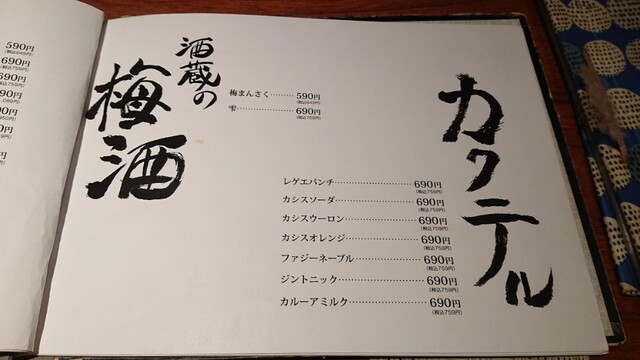 カクテル
レゲエパンチ………………690円
(税込759円)
カシスソーダ………………690円
(税込759円)
カシスウーロン………………690円
(税込759円)
カシスオレンジ………………690円
(税込759円)
ファジーネーブル………………690円
(税込759円)
ジントニック………………690円
(税込759円)
カルーアミルク………………690円
(税込759円)
酒蔵の
梅酒
梅まんさく………590円
(税込649円)
雫………………690円
(税込759円)
590円
(税込649円)
690円
(税込759円)
690円
(税込759円)